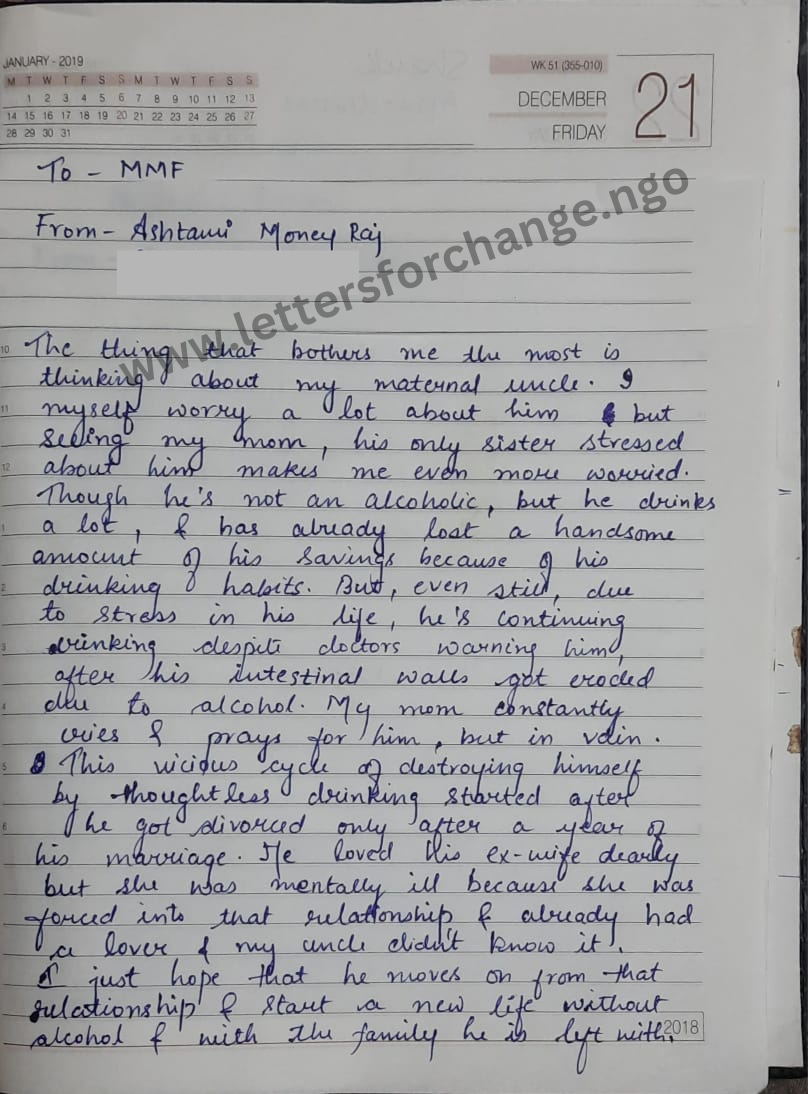 JANUARY - 2019
M T W T F S S M T W T F S S
1 2 3 4 5 6 7 8 9 10 11 12 13
14 15 16 17 18 19 20 21 22 23 24 25 26 27
28 29 30 31
WK 51 (355-010)
DECEMBER
FRIDAY
21
To - MMF
From - Ashtami Money Raj
www.lettersforchange.ngo
10 The thing that bothers me the most is
thinking about my maternal uncle. I
11 myself worry a lot about him but
seeing my mom, his only sister stressed
12 about him makes me even more worried.
Though he's not an alcoholic, but he drinks
1 a lot, & has already lost a handsome
amount of his savings because of his
2 drinking habits. But, even still, due
to stress in his life, he's continuing
3 drinking despite doctors warning him,
after his intestinal walls got eroded
4 due to alcohol. My mom constantly
cries & prays for him, but in vain.
5 This vicious cycle of destroying himself
by thoughtless drinking started after
6 he got divorced only after a year of
his marriage. He loved his ex-wife dearly
but she was mentally ill because she was
forced into that relationship & already had
a lover & my uncle didn't know it.
I just hope that he moves on from that
relationship & start a new life without
alcohol & with the family he is left with.
2018